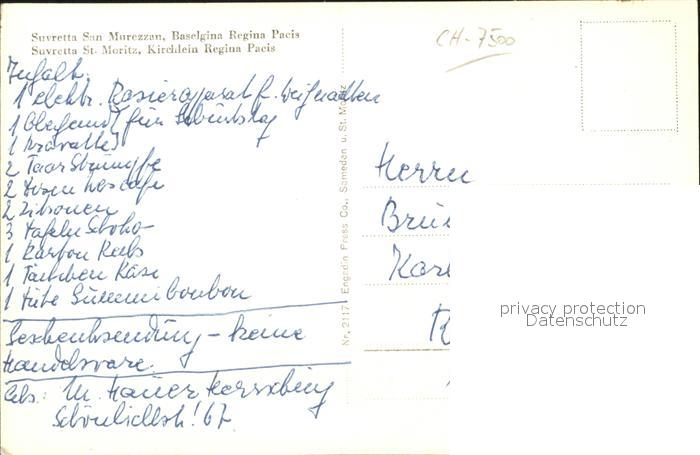 Suvretta San Murezzan, Baselgina Regina Pacis
Suvretta St. Moritz, Kirchlein Regina Pacis
CH-7500
Inhalt:
1 elektr. Rasierapparat f. Weihnachten
1 Oberhemd für Geburtstag
1 Kravatte
2 Paar Strümpfe
2 Dosen Nescafe
2 Zitronen
3 Tafeln Schoko-
1 Karton Keks
1 Käse
1 Tüte Gummibonbon
Geschenksendung - keine
Handelsware.
Abs.: M. Hauer
67
Herrn
Brü
Kar
Nr. 2117 Engadin Press Co., Samedan u. St. Moritz
privacy protection
Datenschutz